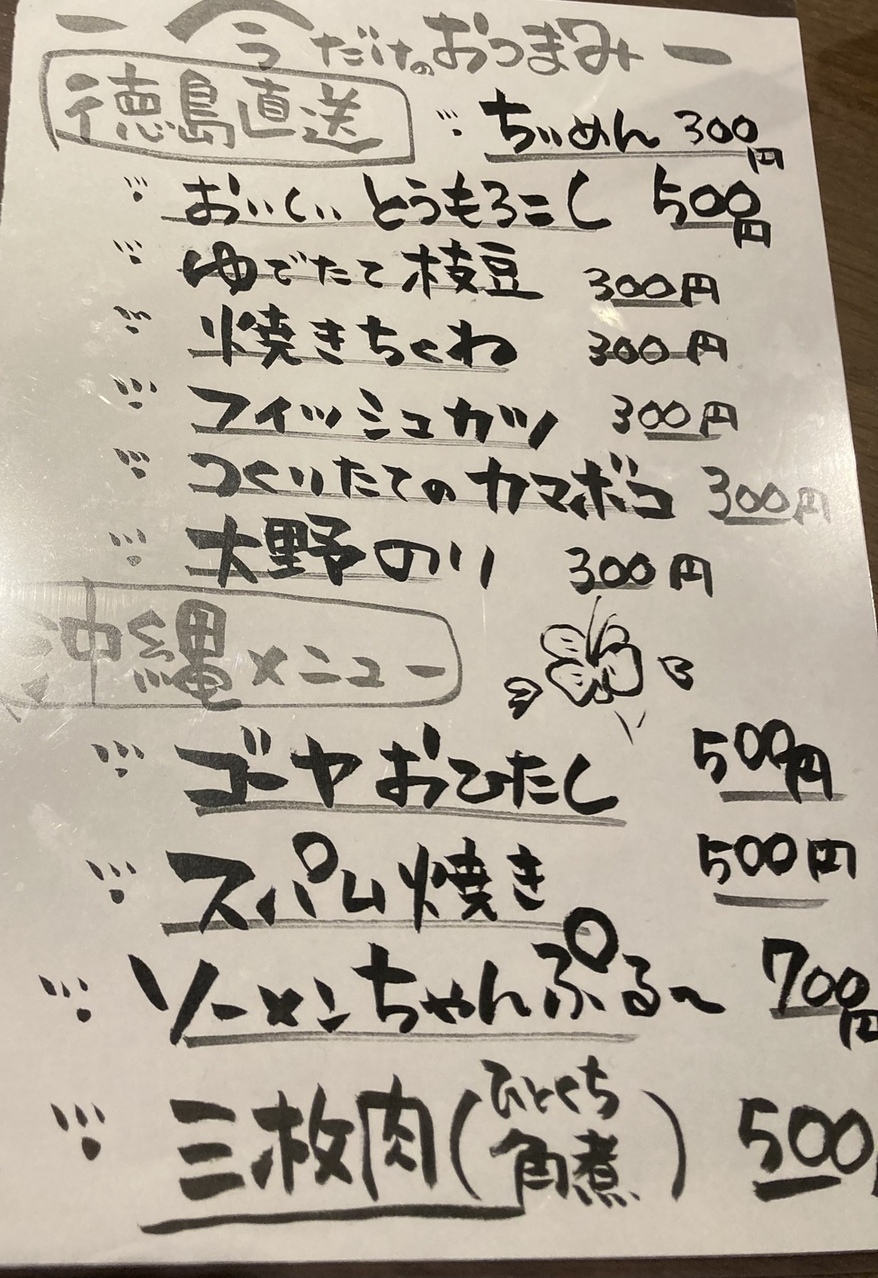 ー 今だけのおつまみ ー
徳島直送
ちりめん 300円
おいしい とうもろこし 500円
ゆでたて枝豆 300円
焼きちくわ 300円
フィッシュカツ 300円
つくりたてのカマボコ 300円
大野のり 300円
沖縄メニュー
ゴーヤおひたし 500円
スパム焼き 500円
ソーメンちゃんぷる〜 700円
三枚肉(ひとくち角煮) 500円